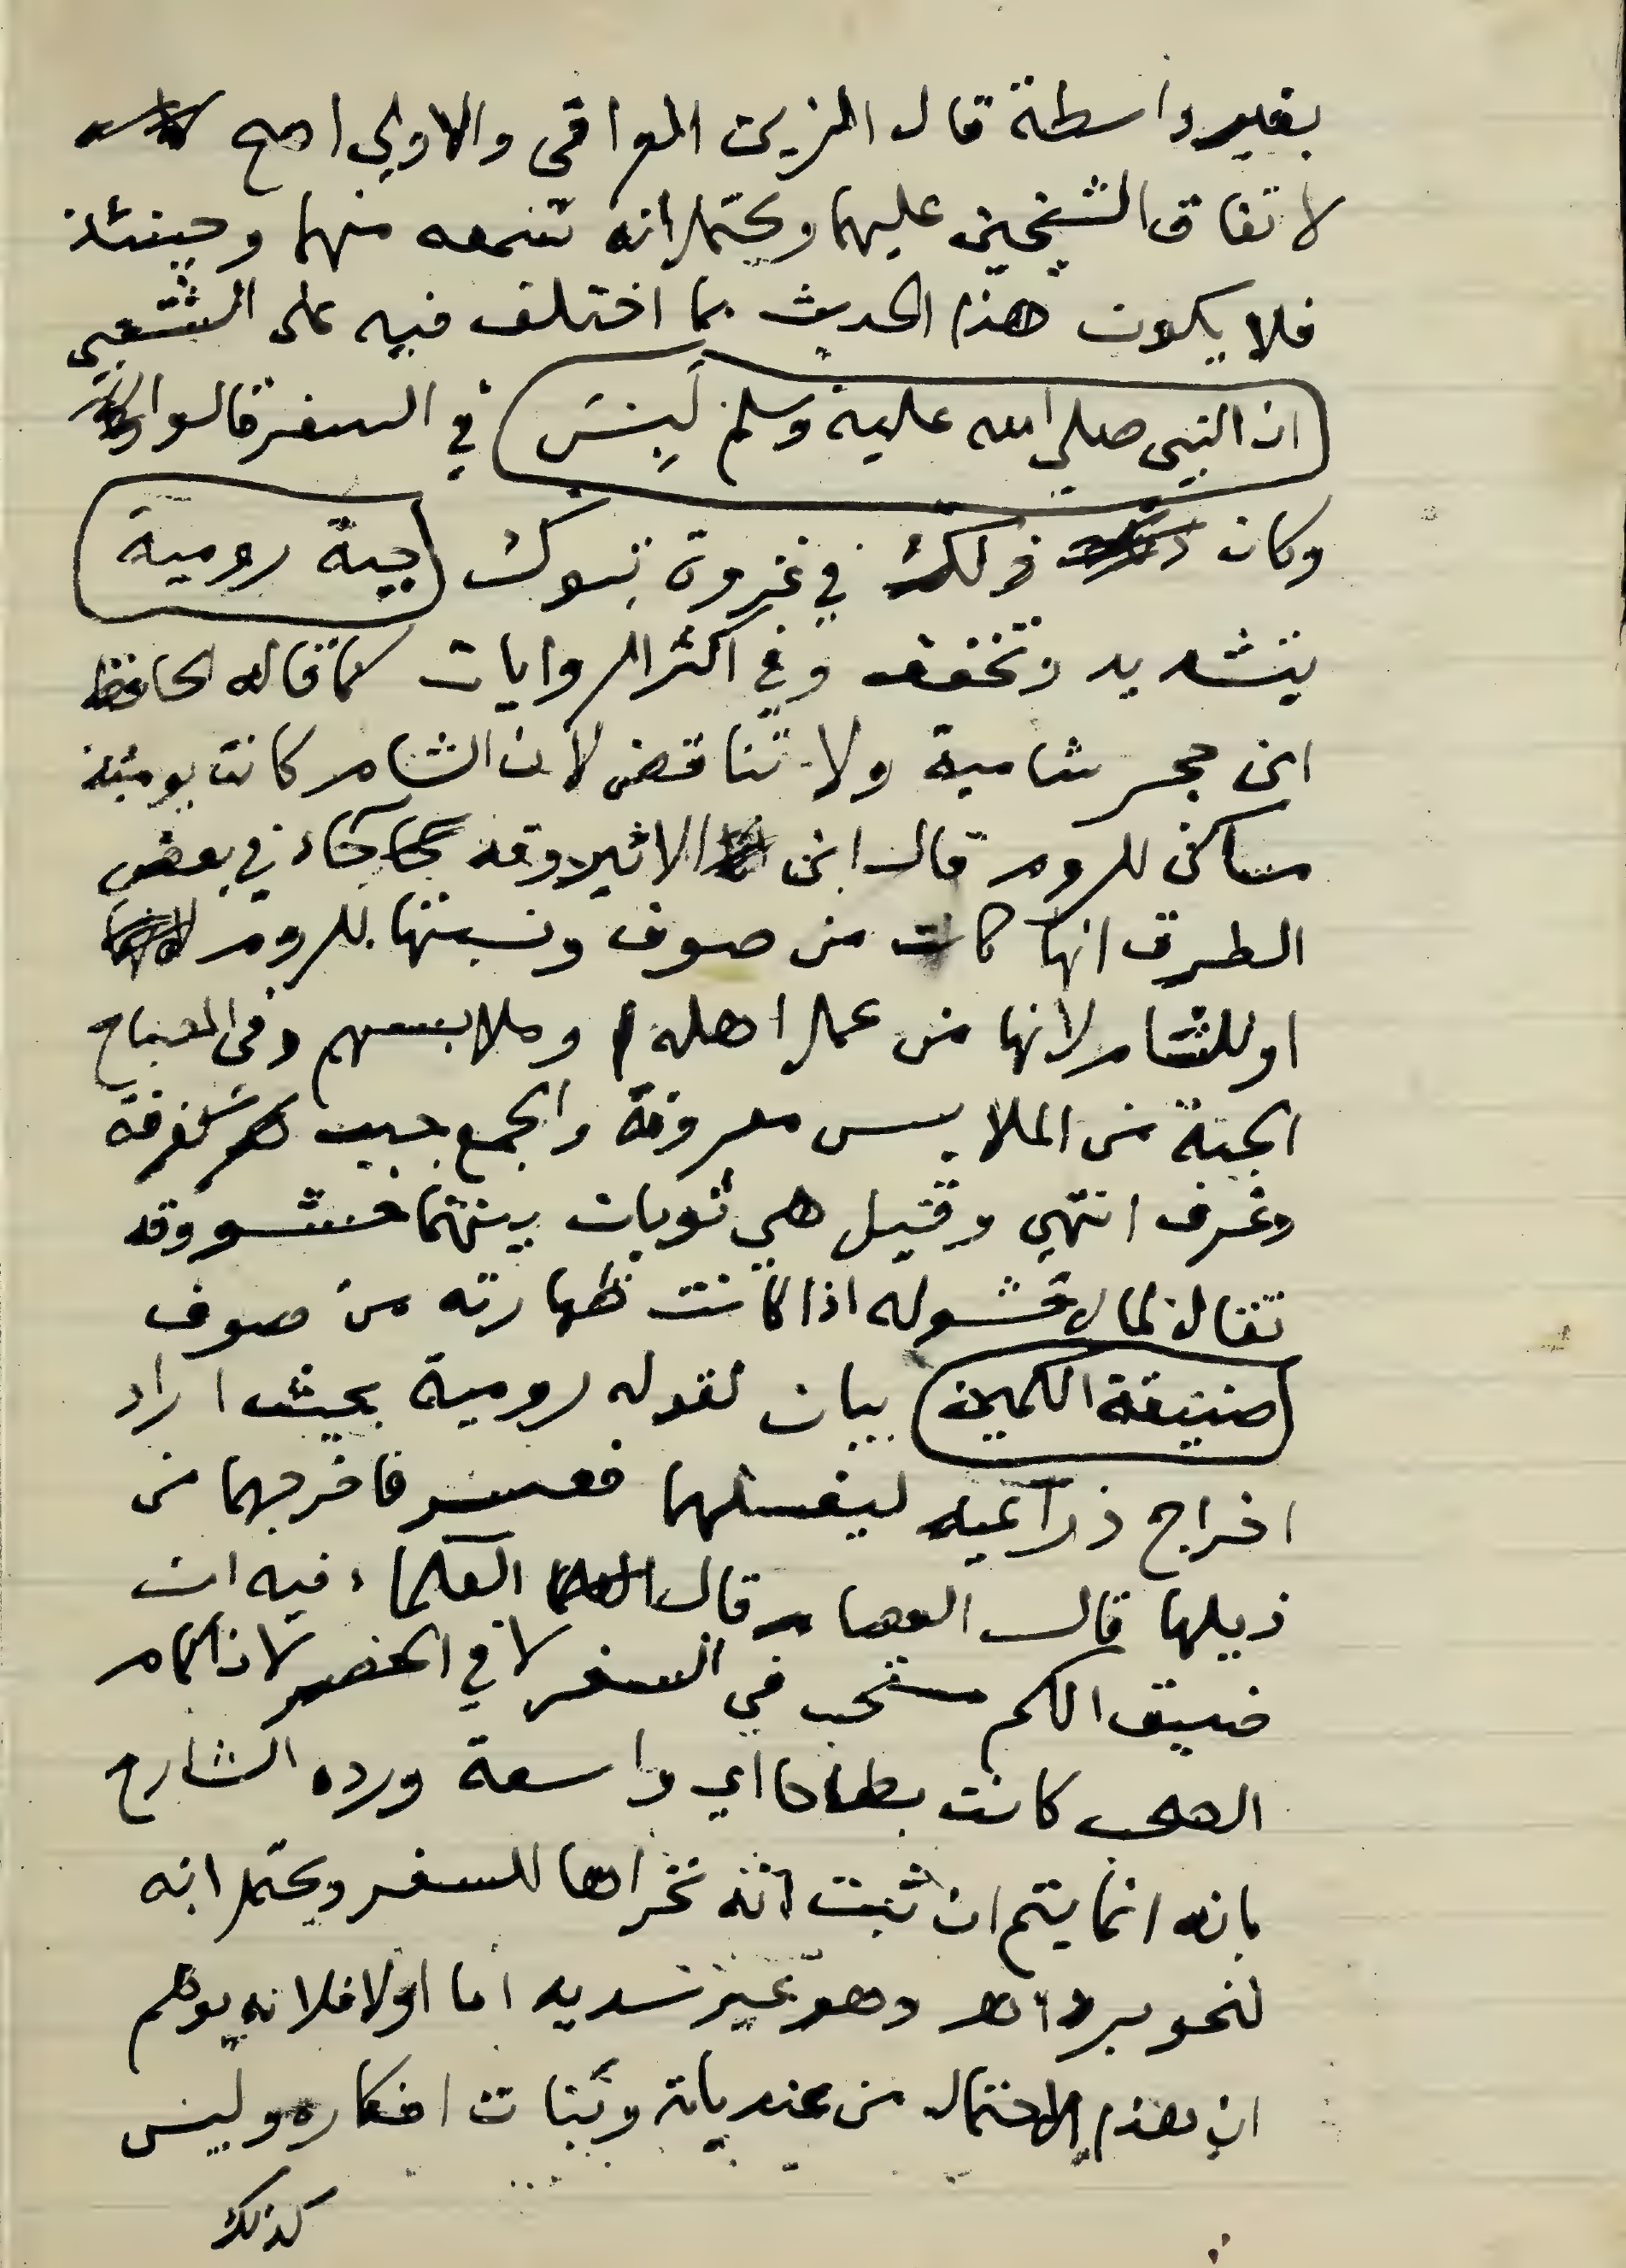 بغير واسطة قال الزين العراقي والاولي اصح
لاتفاق الشيخين عليها ويحتمل انه تسمعه منهما وحينئذ
فلا يكون هذا الحديث مما اختلف فيه على الشعبي
ان النبي صلي الله عليه وسلم لبس في السفر قالوا
وكان ذلك في غزوة تبوك جبة رومية
بتشديد وتخفف وفي اكثر الروايات كما قاله الحافظ
ابن حجر شامية ولا تناقض لان الشام كانت يومئذ
مساكن للروم قال ابن الاثير وقد جاء في بعض
الطرق انها كانت من صوف ونسبتها للروم
او للشام لانها من عمل اهله وملابسهم وفي المصباح
الجبة من الملابس معروفة والجمع جبب كغرفة
وغرف انتهى وقيل هي ثوبان بينهما حشو وقد
تقال لما لا حشو له اذا كانت ظهارته من صوف
ضيقة الكمين بيان لقوله رومية بحيث اراد
اخراج ذراعيه ليغسلهما فعسر فاخرجهما من
ذيلها قال العصام قال العلماء فيه ان
ضيق الكم مستحب في السفر لا في الحضر لان اكمام
الصحب كانت بطاحا اي واسعة ورده الشارح
بانه انما يتم ان ثبت انه تحراها للسفر ويحتمل انه
لنحو برد وهو غير سديد اما اولا فلانه يوهم
ان هذا الاحتمال من عندياته وبنات افكاره وليس
كذلك